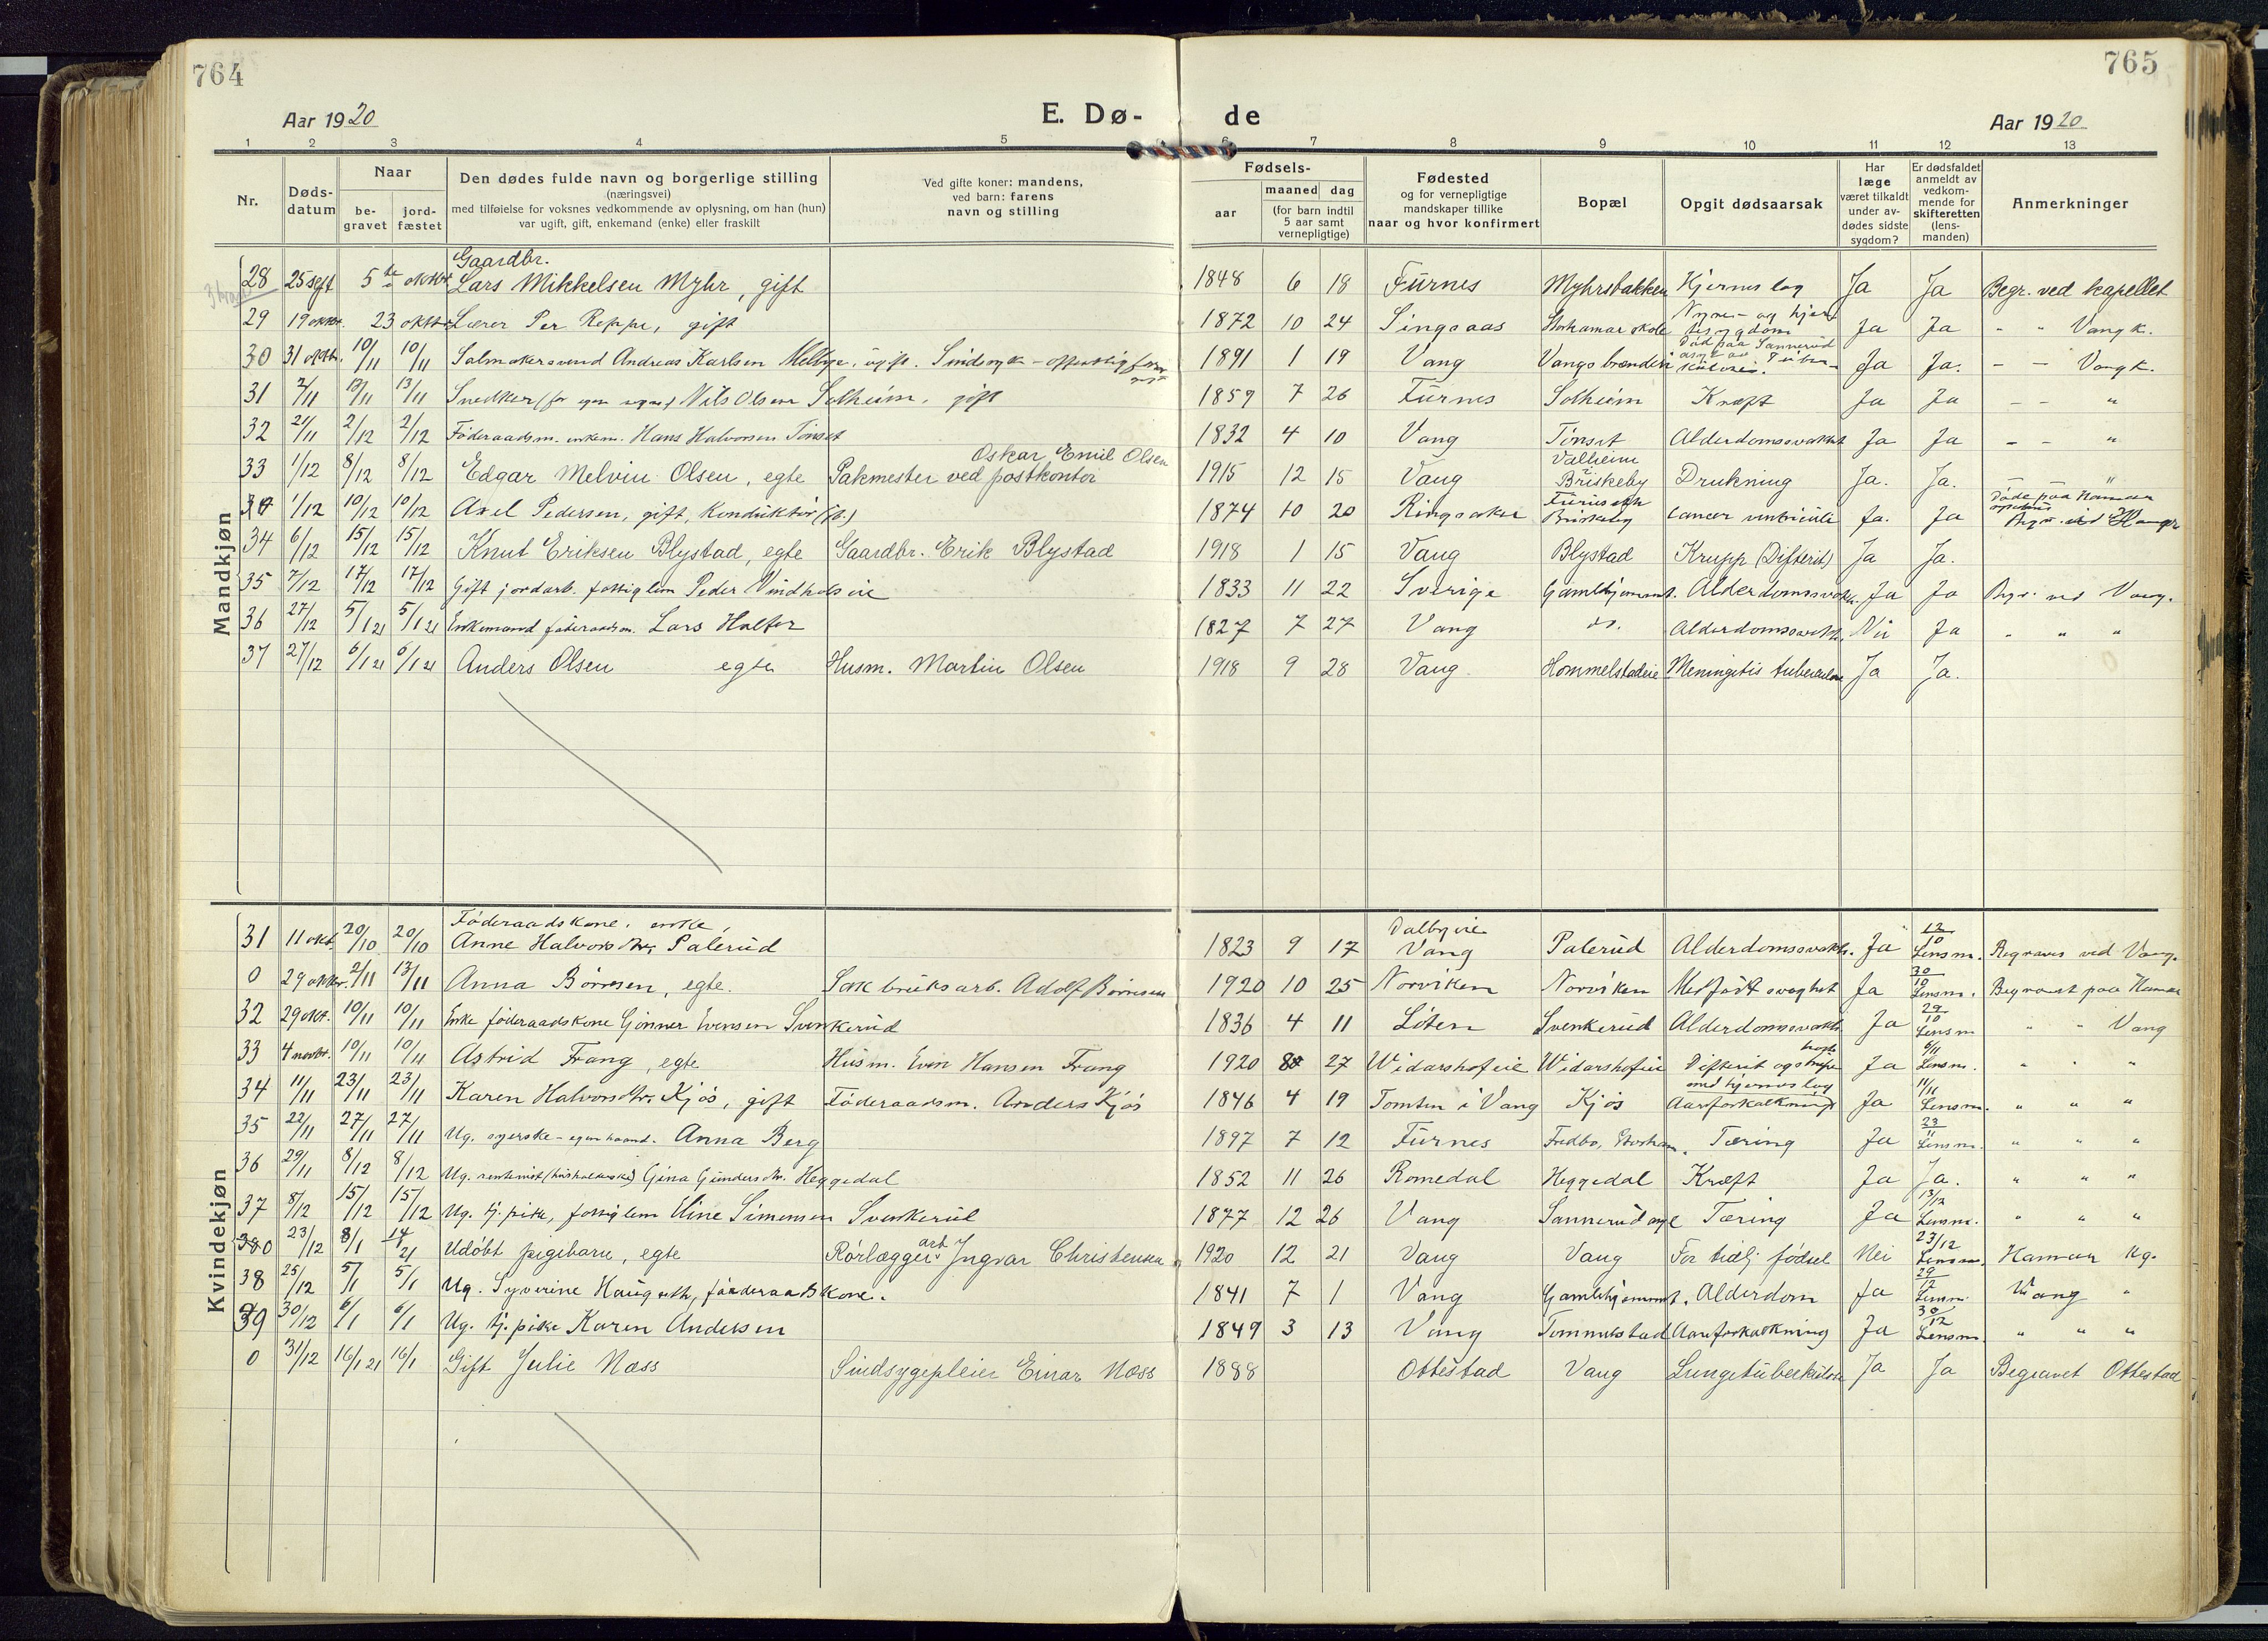 764
765
Aar 1920
E. Dø-
de
Aar 1920
1 2 3 4 5 6 7 8 9 10 11 12 13
Nr. Døds-datum Naar be-gravet jord-fæstet Den dødes fulde navn og borgerlige stilling (næringsvei) med tilføielse for voksnes vedkommende av oplysning, om han (hun) var ugift, gift, enkemand (enke) eller fraskilt Ved gifte koner: mandens, ved barn: farens navn og stilling Fødsels- aar maaned dag (for barn indtil 5 aar samt vernepligtige) Fødested og for vernepligtige mandskaper tillike naar og hvor konfirmert Bopæl Opgit dødsaarsak Har læge været tilkaldt under av-dødes sidste sygdom? Er dødsfaldet anmeldt av vedkom-mende for skifteretten (lens-manden) Anmerkninger
Mandkjøn
28 25 sept 5te oktbr Gaardbr. Lars Mikkelsen Myhr, gift 1848 6 18 Furnes Myhrsbakken Hjerneslag Ja Ja Begr. ved kapellet
29 19 oktbr. 23 oktbr Lærer Per Reppe, gift 1872 10 24 Singsaas Storhamar skole Nyre- og hjertesygdom Ja Ja " " Vang k.
30 31 oktbr. 10/11 10/11 Salmakersvend Andreas Karlsen, ugift. Sindssyk - offentlig 1891 1 19 Vang Vangs brænderi Død paa Sannerud asyl av Tuberkulose. Ja Ja. - - Vang k.
31 2/11 13/11 13/11 Snedker (for egen regn.) Nils Olsen Solheim, gift 1859 7 26 Furnes Solheim Kræft Ja Ja - - "
32 21/11 2/12 2/12 Föderaadsm. enkem. Hans Halvorsen Tönset 1832 4 10 Vang Tönset Alderdomssvakhet Ja Ja - - "
33 1/12 8/12 8/12 Edgar Melvin Olsen, egte Oskar Emil Olsen Pakmester ved postkontor 1915 12 15 Vang Valheim Briskeby Drukning Ja. Ja. - "
0 1/12 10/12 10/12 Axel Pedersen, gift, Konduktör 1874 10 20 Ringsaker Briskeby Cancer ventriculi Ja. Ja Döde paa Hamar Begr. ved Hamar
34 6/12 15/12 15/12 Knut Eriksen Blystad, egte Gaardbr. Erik Blystad 1918 1 15 Vang Blystad Krupp (Difterit) Ja Ja.
35 7/12 17/12 17/12 Gift jordarb. fattiglem Peder Vindholseie 1833 11 22 Sverige Gamlehjemmet. Alderdomssvakh. Ja Ja Begr. ved Vang.
36 27/12 5/1 21 5/1 21 Enkemand föderaadsm. Lars Halter 1827 7 27 Vang do. Alderdomssvakh. Nei Ja " " "
37 27/12 6/1 21 6/1 21 Anders Olsen egte Husm. Martin Olsen 1918 9 28 Vang Hommelstadeie Meningitis tuberculosa Ja Ja.
Kvindekjøn
31 11 okt. 20/10 20/10 Föderaadskone, enke, Anne Halvorsdtr. Palerud 1823 9 17 Dalbyeie Vang Palerud Alderdomssvakh. Ja 12/10 Lensm. Begraves ved Vang.
0 29 oktbr. 2/11 13/11 Anna Börresen, egte. Sakbruksarb. Adolf Börresen 1920 10 25 Norviken Norviken Medfödt svaghet Ja 30/10 Lensm. Begravet paa Hamar
32 29 okt. 10/11 10/11 Enke föderaadskone Gjönner Evensen Svenkerud 1836 4 11 Löten Svenkerud Alderdomssvakh. Ja 29/10 Lensm " " Vang
33 4 novbr. 10/11 10/11 Astrid Frang, egte Husm. Even Hansen Frang 1920 8 27 Widarshofeie Widarshofeie Difterit og Ja 6/11 Lensm. " " "
34 11/11 23/11 23/11 Karen Halvorsdtr. Kjös, gift Föderaadsm. Anders Kjös 1846 4 19 Tomten i Vang Kjös Aareforkalkning med hjerneslag Ja 11/11 Lensm. " " "
35 22/11 27/11 27/11 Ug. syerske - egen haand. Anna Berg 1897 7 12 Furnes Fredbo, Storham. Tæring Ja 23/11 Lensm. " " "
36 29/11 8/12 8/12 Ug. rentenist (husholderske) Gina Gundersdtr. Heggedal 1852 11 26 Romedal Heggedal Kræft Ja Ja. " " "
37 8/12 15/12 15/12 Ug. tj. pike, fattiglem Eline Simensen Svenkerud 1877 12 26 Vang Sannerud asyl Tæring Ja 13/12 Lensm. " " "
0 23/12 8/1 14/21 Udöbt pigebarn, egte Rörlæggerarb. Ingvar Christensen 1920 12 21 Vang Vang For tidlig födsel Nei 23/12 Lensm. Hamar kg.
38 25/12 5/1 5/1 Ug. Syverine Haugseth, föderaadskone. 1841 7 1 Vang Gamlehjemmet. Alderdom Ja 29/12 Lensm. Vang "
39 30/12 6/1 6/1 Ug. tj. pike Karen Andersen 1849 3 13 Vang Tommelstad Aareforkalkning Ja 30/12 Lensm. " " "
0 31/12 16/1 21 16/1 Gift Julie Næss Sindsygepleier Einar Næss 1888 Ottestad Vang Lungetuberkulose Ja Ja Begravet Ottestad